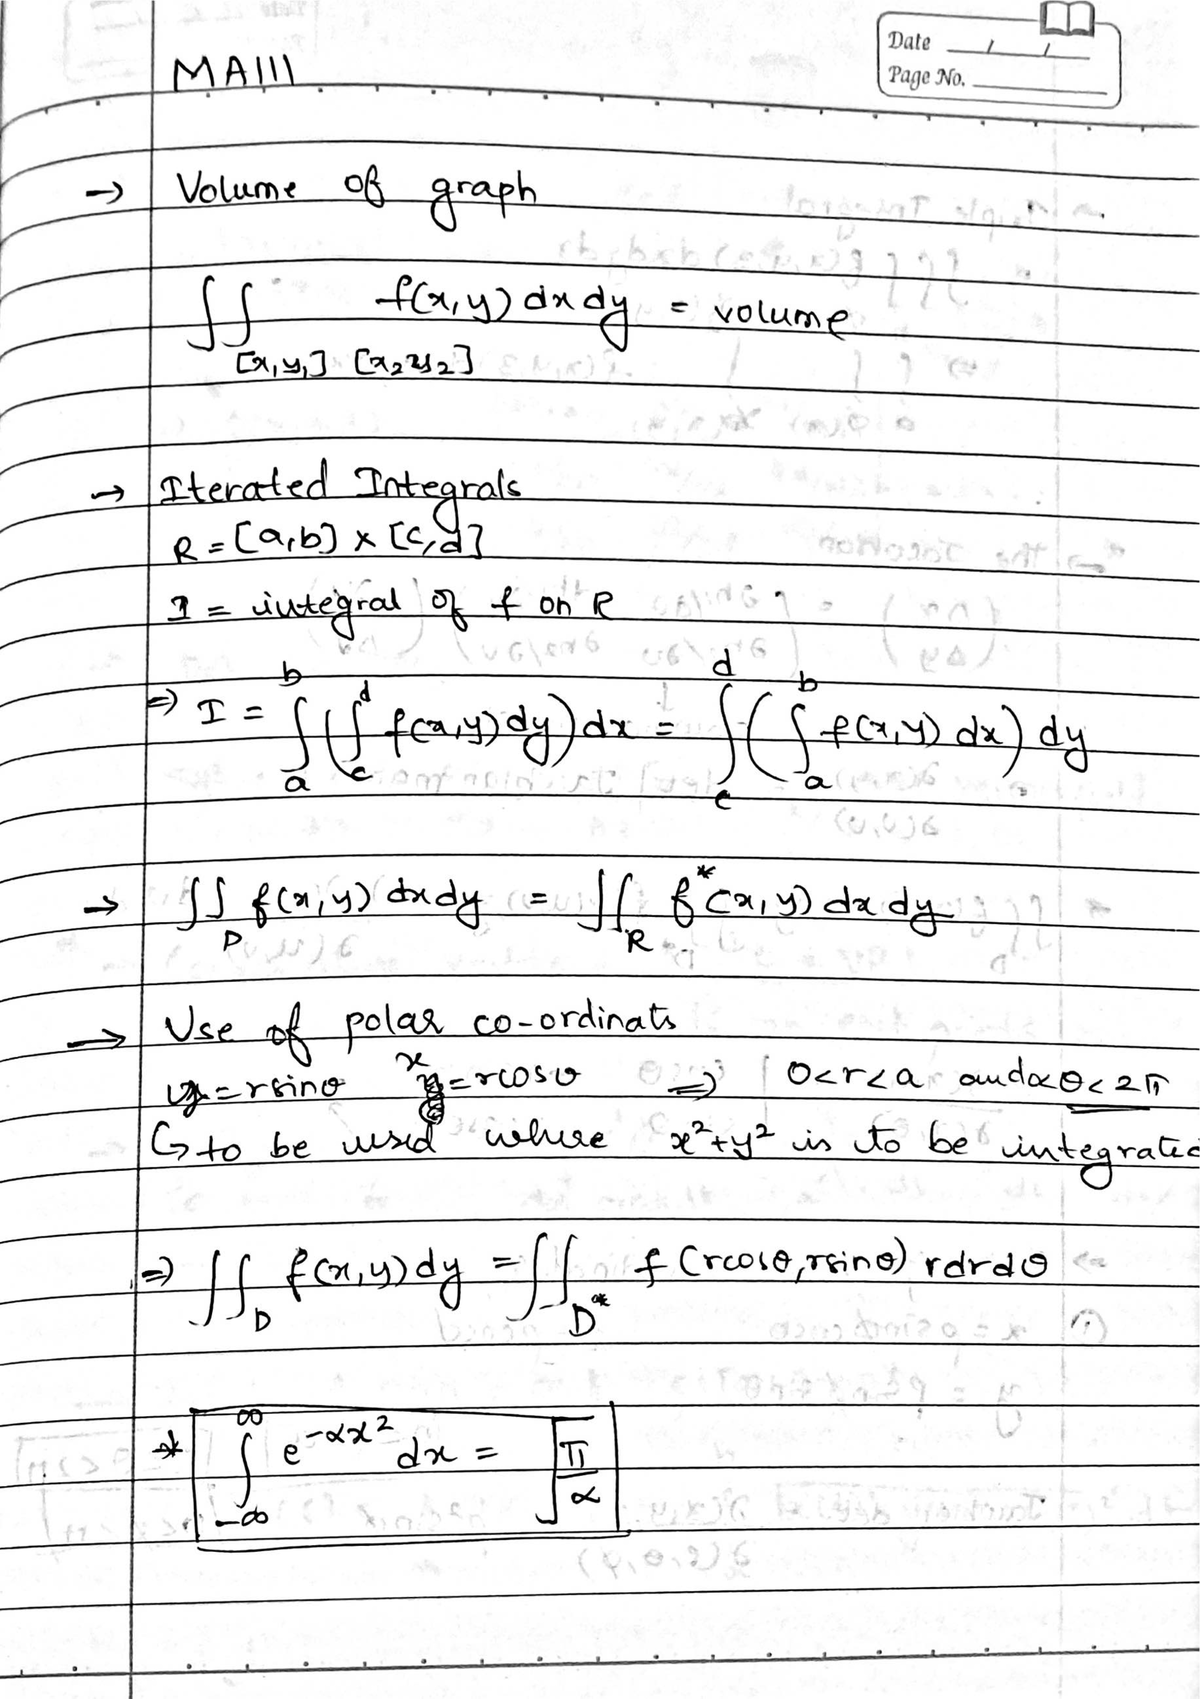 Date / /
Page No.
MA111
→ Volume of graph
∫∫ f(x,y) dx dy = volume
[x₁y₁] [x₂y₂]
→ Iterated Integrals
R = [a,b] x [c,d]
I = integral of f on R
⇒ I = ∫ₐᵇ (∫_c^d f(x,y) dy) dx = ∫_c^d (∫ₐᵇ f(x,y) dx) dy
→ ∫∫_D f(x,y) dx dy = ∫∫_R f*(x,y) dx dy
→ Use of polar co-ordinats
y = rsinθ x = rcosθ ⇒ 0<r<a and 0<θ<2π
↪ to be used where x²+y² is to be integrated
⇒ ∫∫_D f(x,y) dy = ∫∫_D* f(rcosθ, rsinθ) rdrdθ
* ∫_-∞^∞ e^-αx² dx = √(π/α)